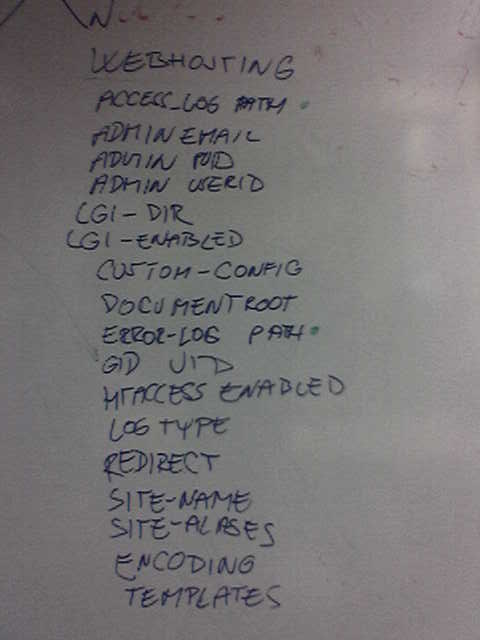 WEBHOSTING
ACCESS_LOG PATH
ADMIN EMAIL
ADMIN PWD
ADMIN USERID
CGI-DIR
CGI-ENABLED
CUSTOM-CONFIG
DOCUMENTROOT
ERROR-LOG PATH
GID UID
HTACCESS ENABLED
LOG TYPE
REDIRECT
SITE-NAME
SITE-ALASES
ENCODING
TEMPLATES